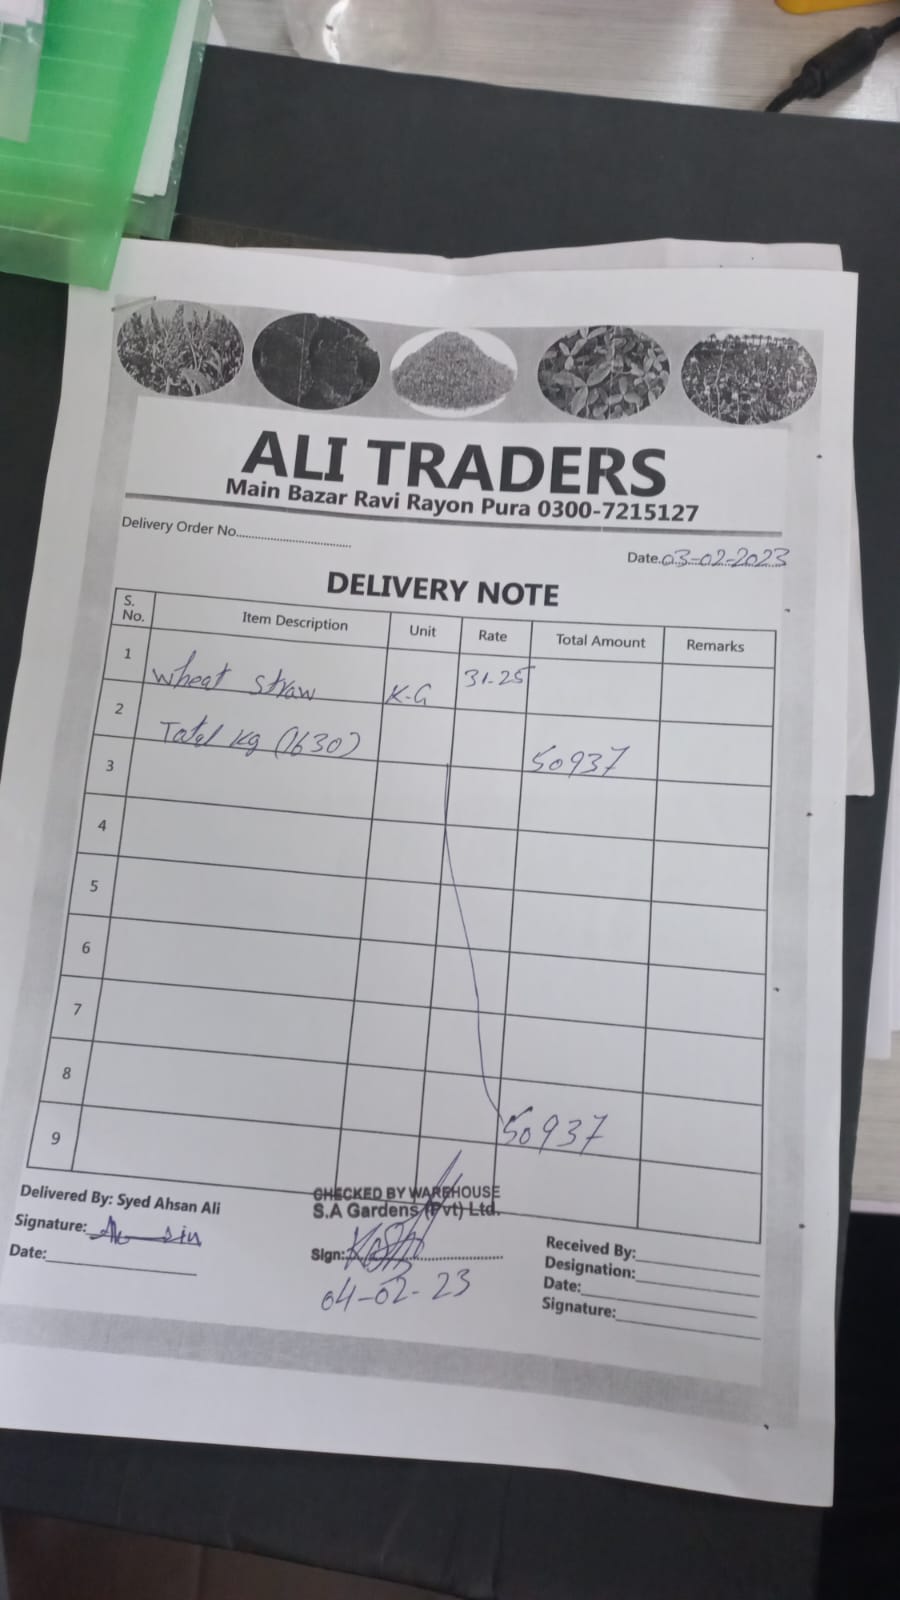 ALI TRADERS
Main Bazar Ravi Rayon Pura 0300-7215127
Delivery Order No..................................
Date.03-02-2023
DELIVERY NOTE
S. No. Item Description Unit Rate Total Amount Remarks
1 Wheat straw K-G 31-25
2 Total kg (1630) 50937
3
4
5
6
7
8 50937
9
Delivered By: Syed Ahsan Ali
Signature:
Date:
CHECKED BY WAREHOUSE
S.A Gardens (Pvt) Ltd.
Sign:
04-02-23
Received By:
Designation:
Date:
Signature: